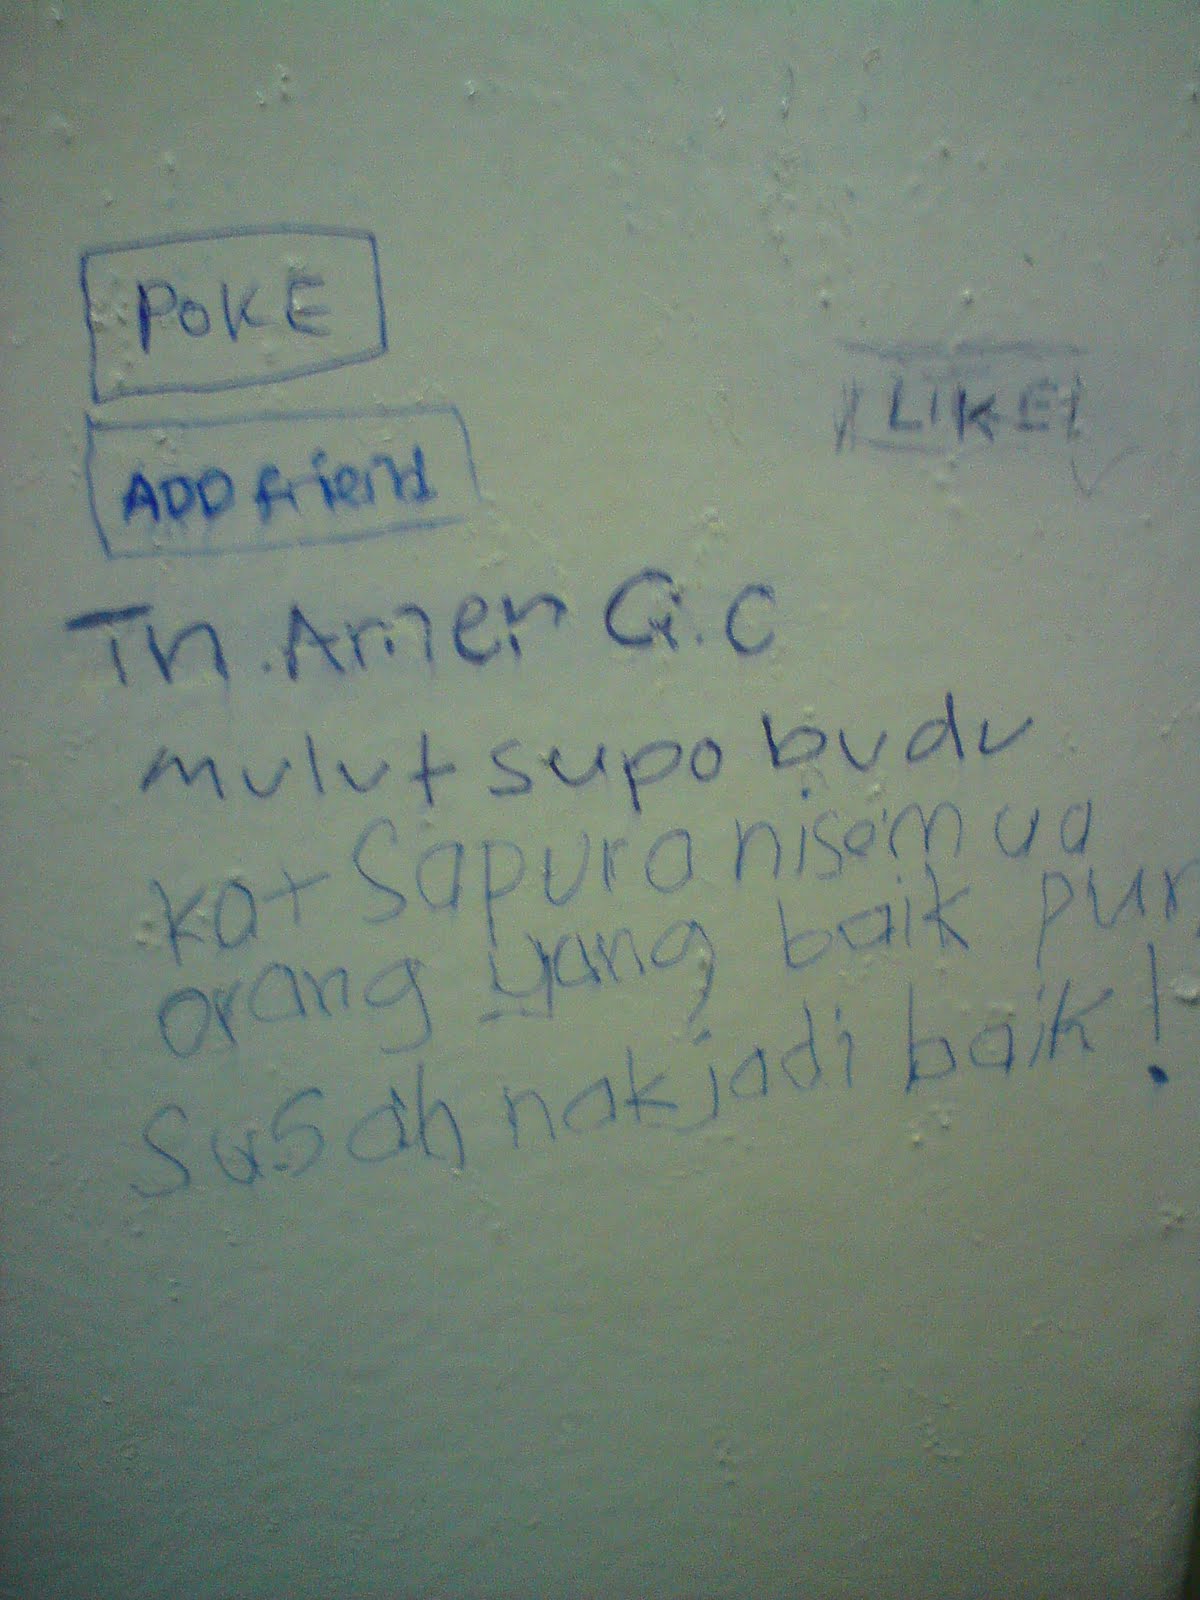 POKE
LIKE
ADD friend
Tn. Amer G.C
mulut supo budu
kat Sapura ni semua
orang yang baik pun
Susah nak jadi baik!